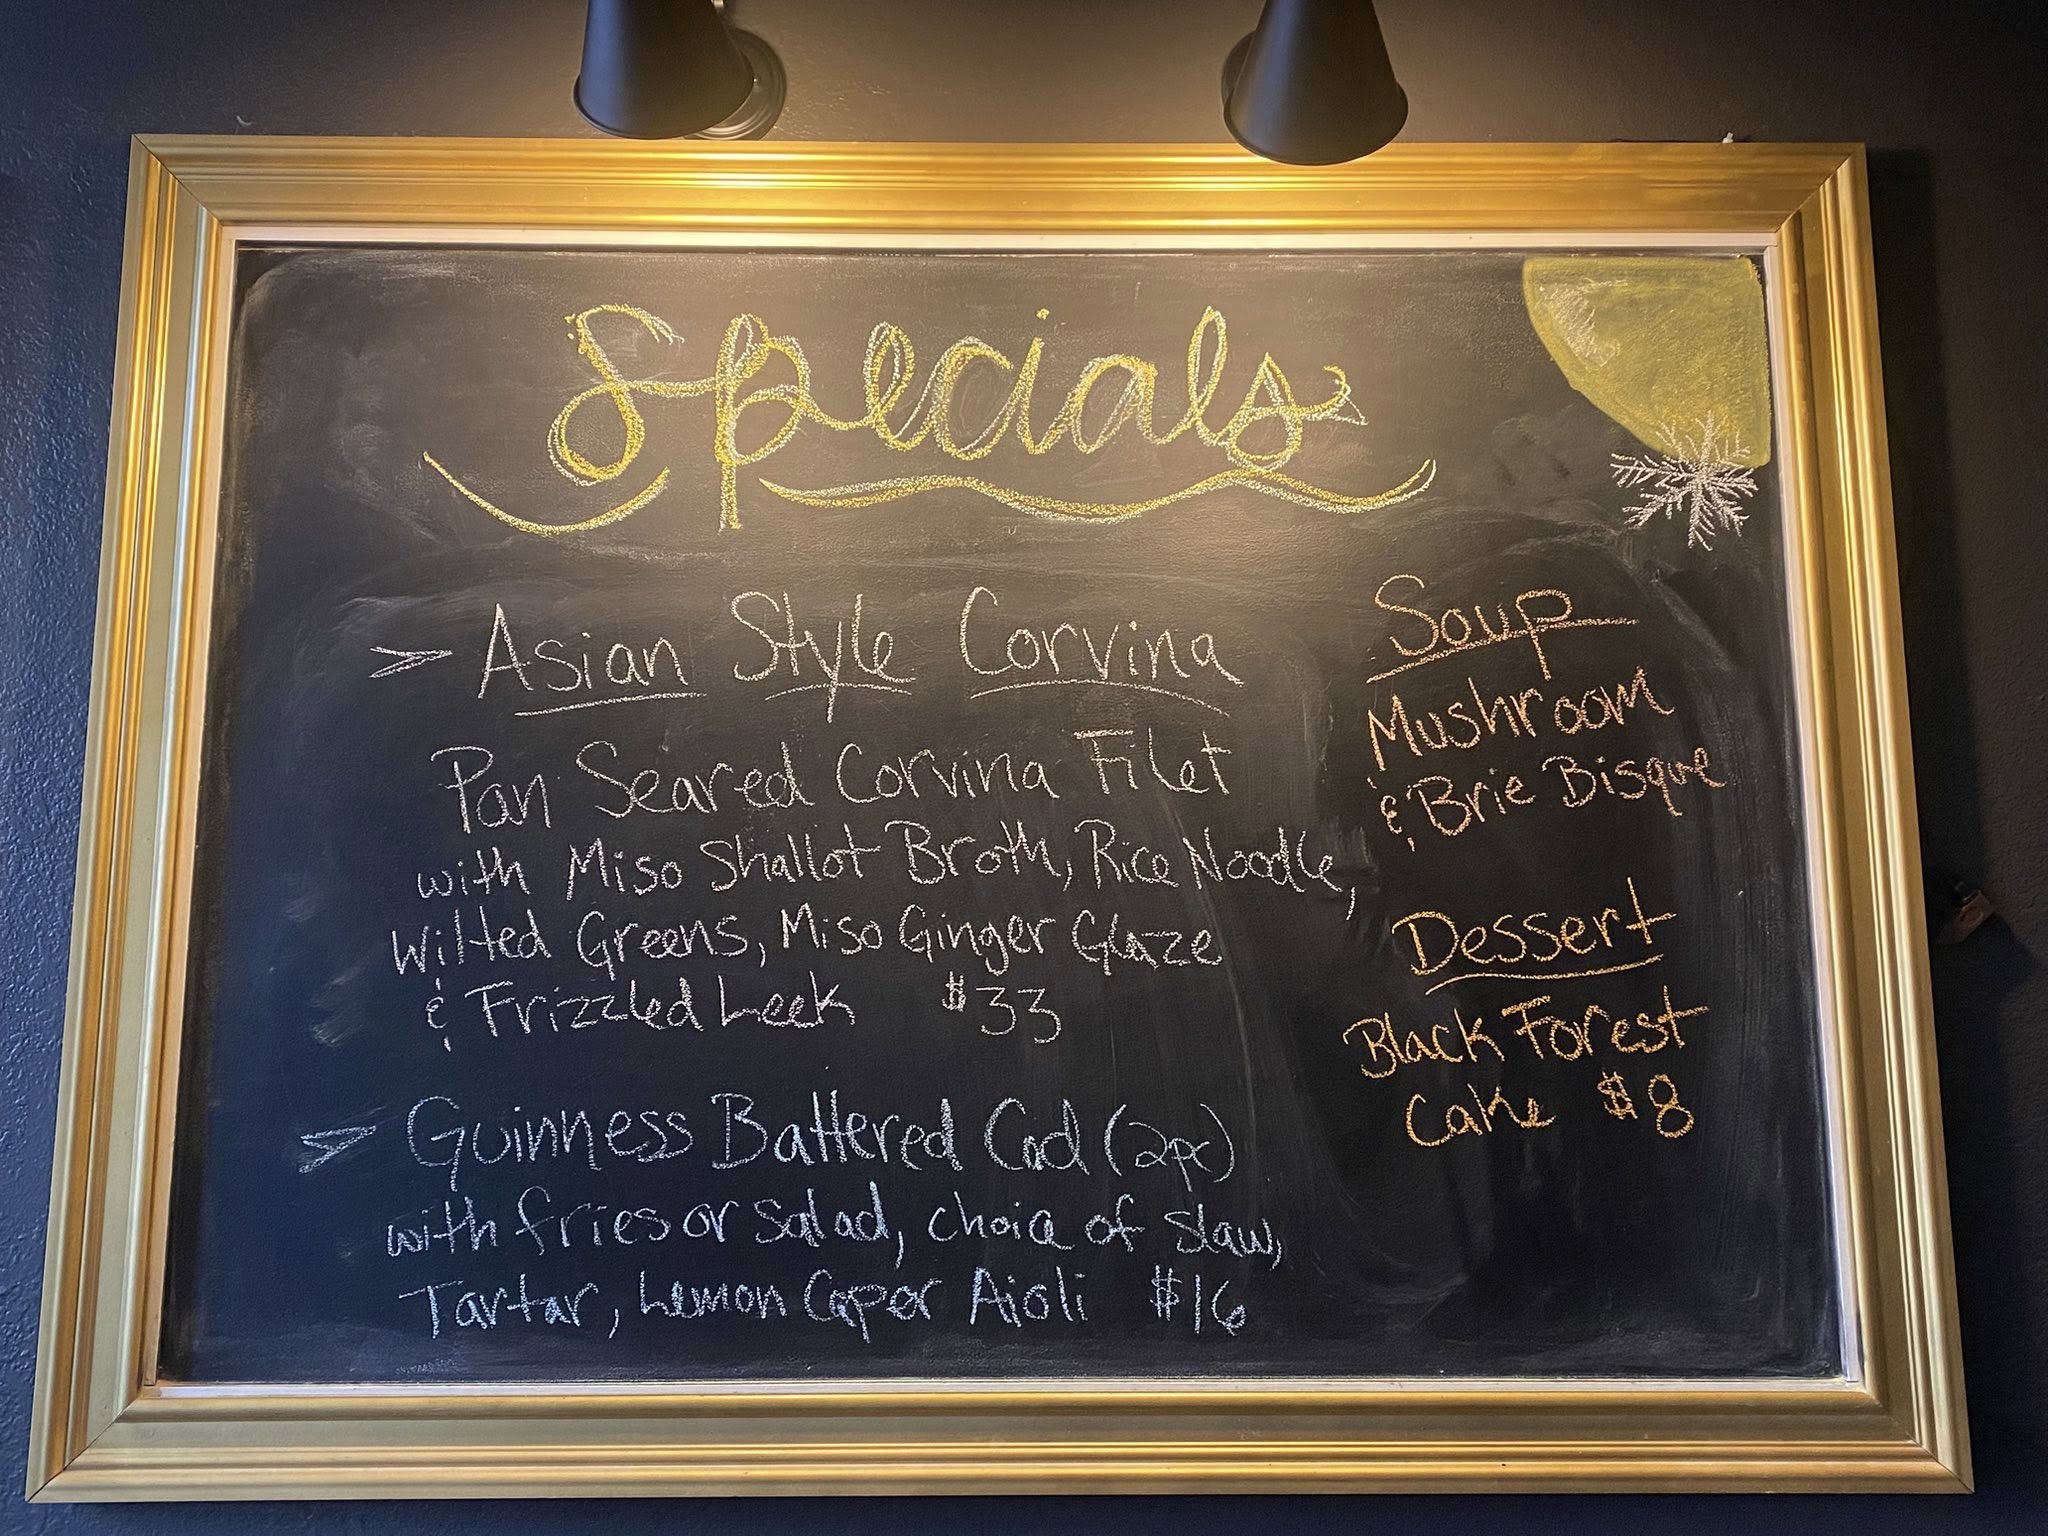 Specials
> Asian Style Corvina
Pan Seared Corvina Filet
with Miso Shallot Broth, Rice Noodle,
Wilted Greens, Miso Ginger Glaze
& Frizzled Leek $33
> Guinness Battered Cod (2pc)
with fries or salad, choice of slaw,
Tartar, Lemon Caper Aioli $16
Soup
Mushroom
& Brie Bisque
Dessert
Black Forest
Cake $8